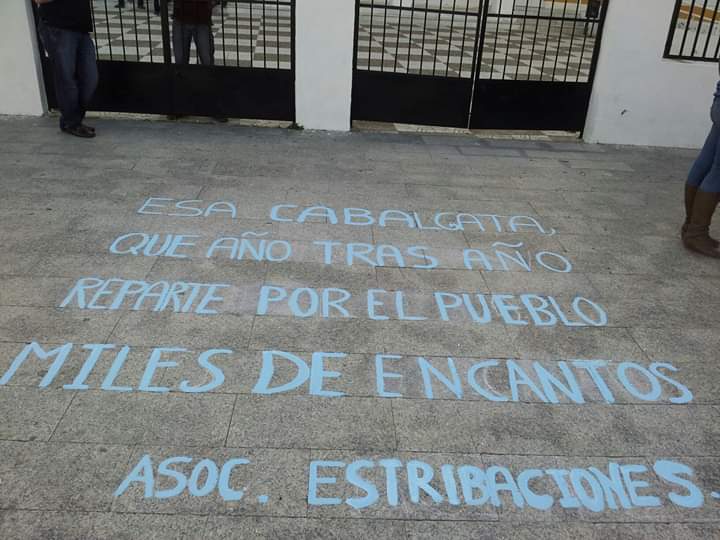 ESA CABALGATA,
QUE AÑO TRAS AÑO
REPARTE POR EL PUEBLO
MILES DE ENCANTOS
ASOC. ESTRIBACIONES.